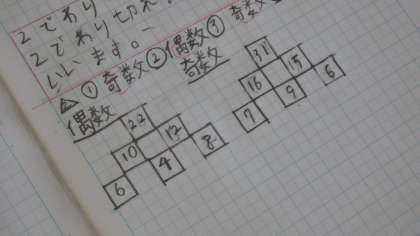 2でわり
2でわり切れ
いいます。
△① 奇数 ② 偶数 ③ 奇数
偶数
22
10 12
6 4 8
奇数
31
16 15
7 9 6